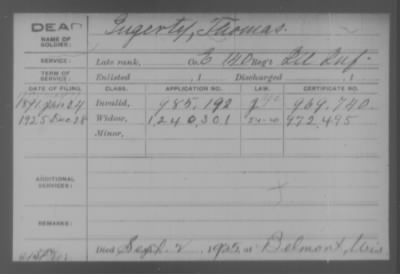 DEAD
Gugerty, Thomas.
NAME OF SOLDIER:
SERVICE: Late rank, Co. E 140 Reg't Ill Inf.
TERM OF SERVICE: Enlisted , 1 Discharged , 1
DATE OF FILING. CLASS. APPLICATION NO. LAW. CERTIFICATE NO.
1891 Jan 24 Invalid, 985.192 969.740
1925 Dec 28 Widow, 1,240,301 972,495
Minor,
ADDITIONAL SERVICES:
REMARKS:
Died Sept. 2, 1925, at Belmont, Wis